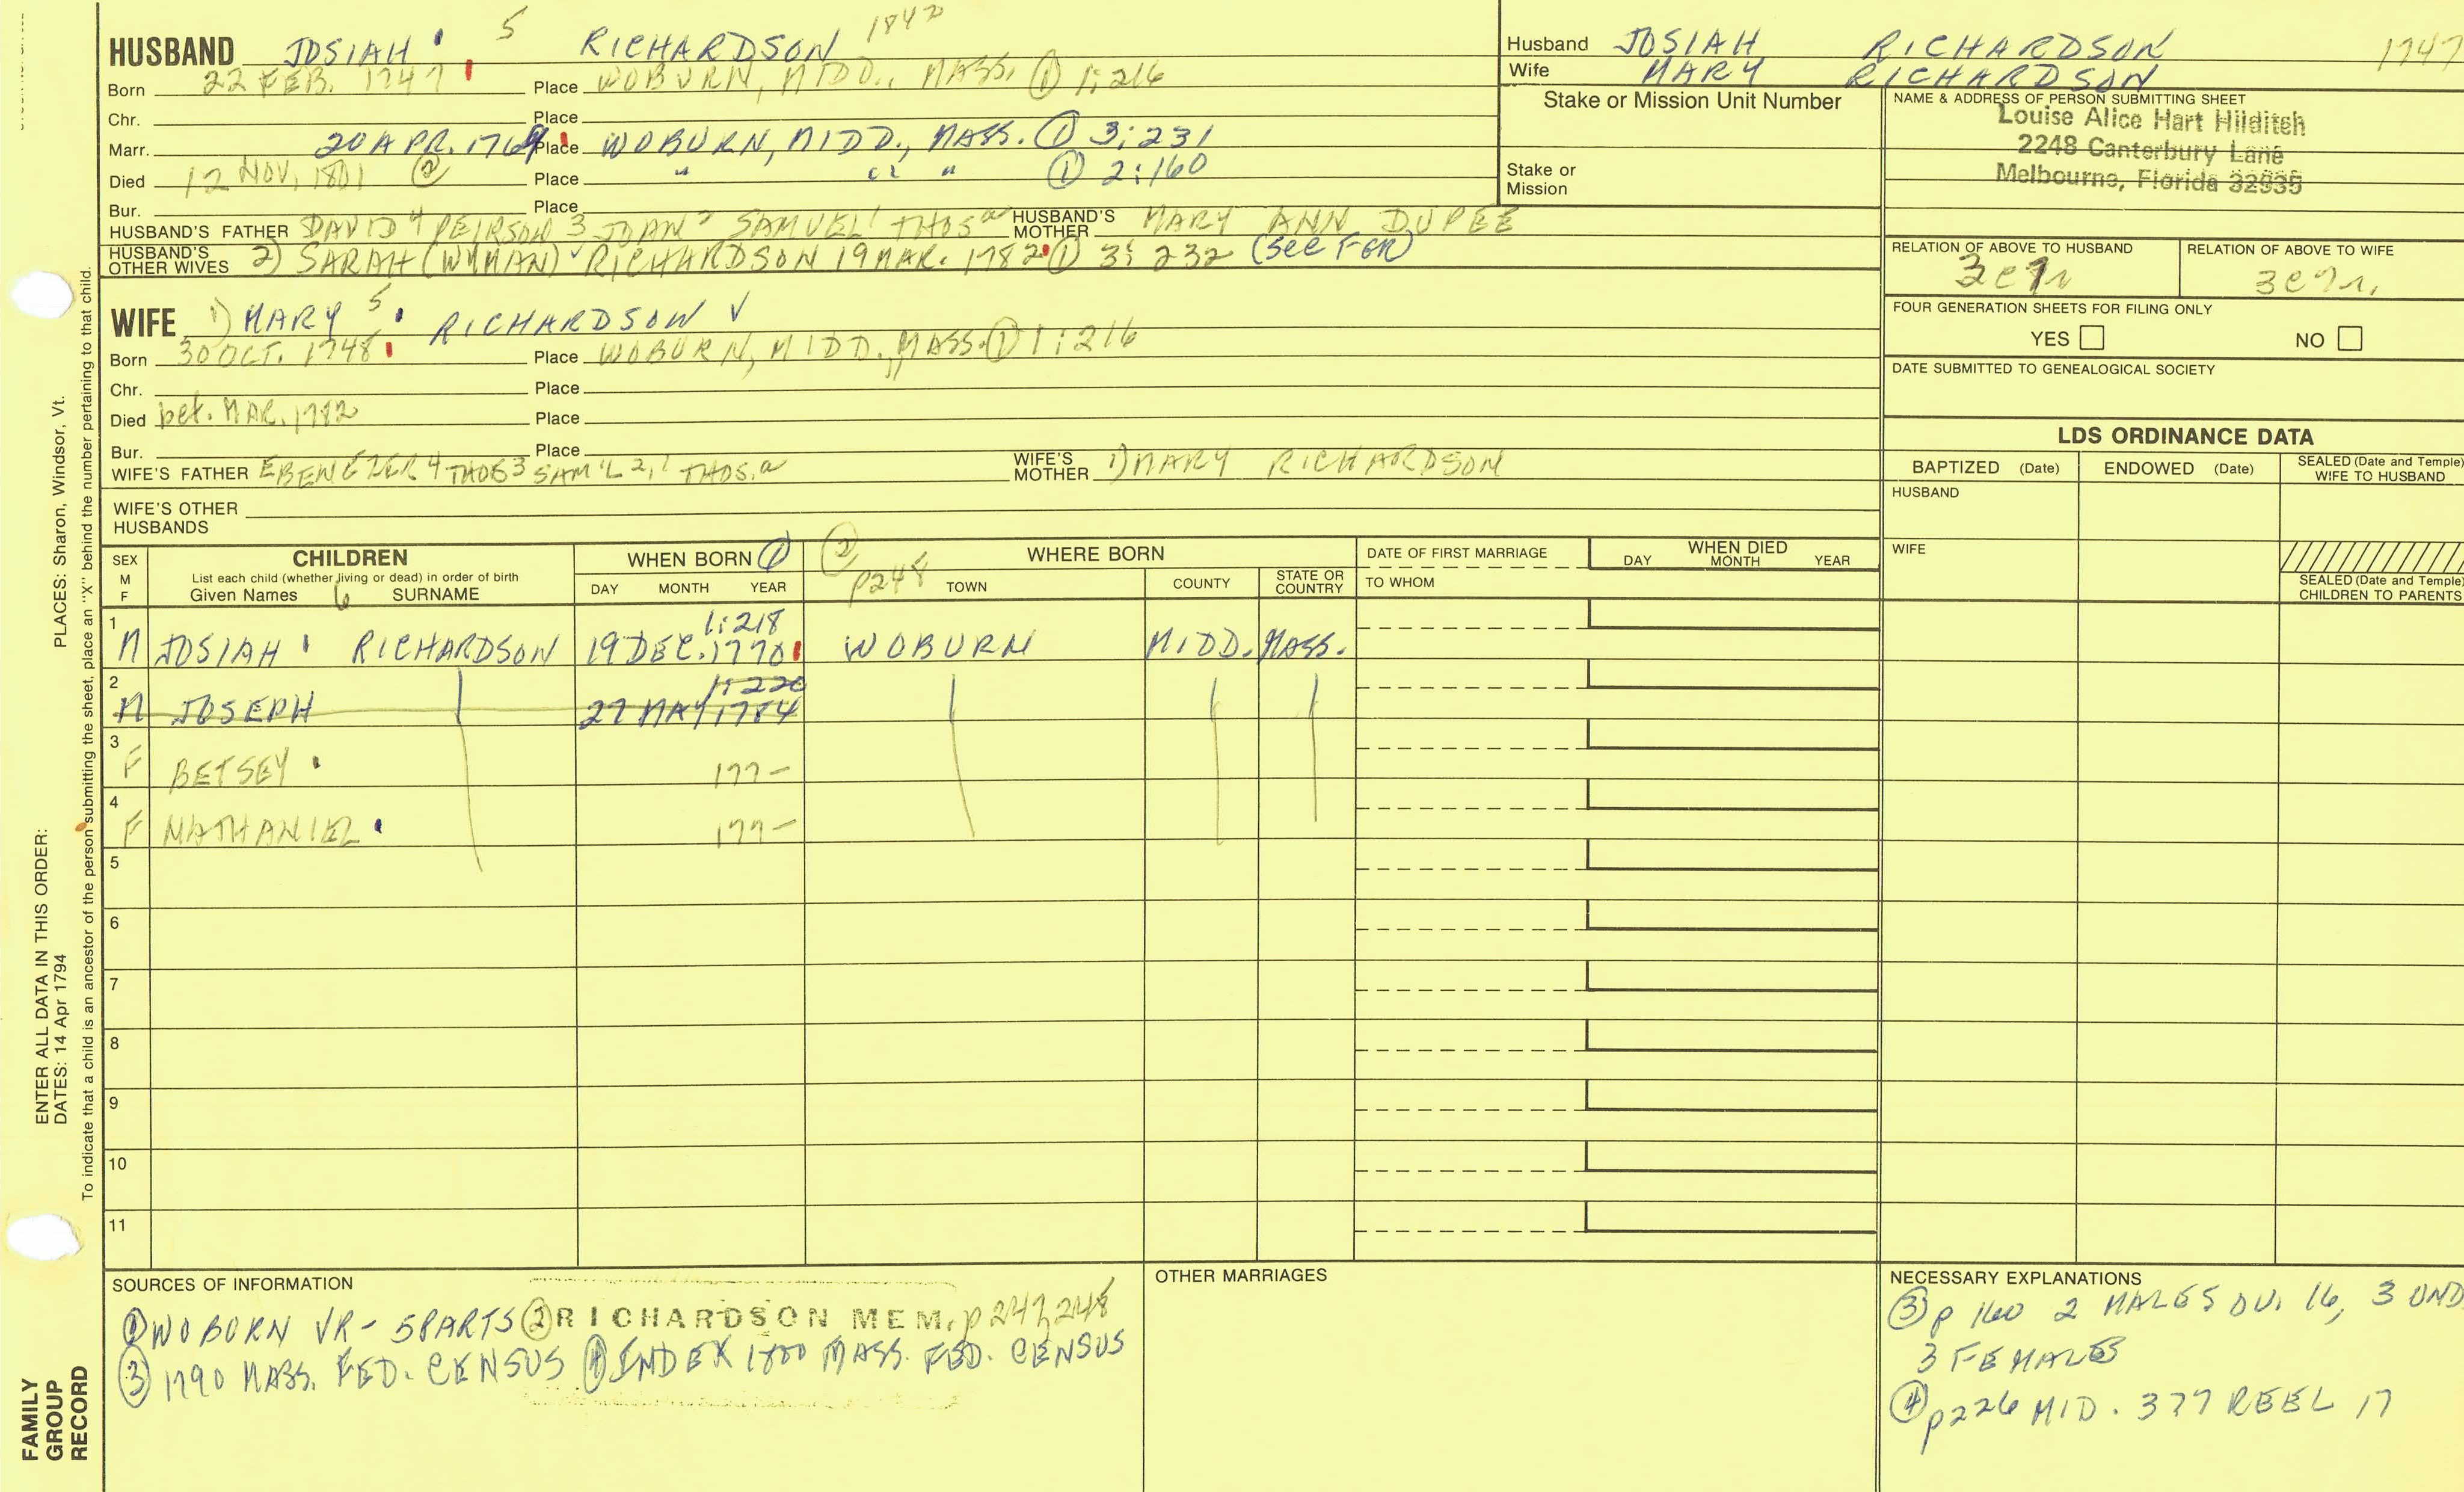 HUSBAND JOSIAH 5 RICHARDSON 1842
Born 22 FEB. 1747 Place WOBURN, MIDD., MASS. ① 1:216
Chr. Place
Marr. 20 APR. 1769 Place WOBURN, MIDD., MASS. ① 3:231
Died 12 NOV. 1801 ② Place " " " ① 2:160
Bur. Place
HUSBAND'S FATHER DAVID 4 PEIRSON 3 JOHN 2 SAMUEL 1 THOS a HUSBAND'S MOTHER MARY ANN DUPEE
HUSBAND'S OTHER WIVES 2) SARAH (WYMAN) RICHARDSON 19 MAR. 1782 ① 3:232 (See FGR)
WIFE 1) MARY 5 RICHARDSON √
Born 30 OCT. 1748 Place WOBURN, MIDD., MASS. ① 1:216
Chr. Place
Died bef. MAR. 1782 Place
Bur. Place
WIFE'S FATHER EBENEZER 4 THOS 3 SAM'L 2,1 THOS. a WIFE'S MOTHER 1) MARY RICHARDSON
WIFE'S OTHER HUSBANDS
Husband JOSIAH RICHARDSON 1747
Wife MARY RICHARDSON
Stake or Mission Unit Number
Stake or Mission
NAME & ADDRESS OF PERSON SUBMITTING SHEET
Louise Alice Hart Hilditch
2248 Canterbury Lane
Melbourne, Florida 32935
RELATION OF ABOVE TO HUSBAND RELATION OF ABOVE TO WIFE
FOUR GENERATION SHEETS FOR FILING ONLY
YES NO
DATE SUBMITTED TO GENEALOGICAL SOCIETY
LDS ORDINANCE DATA
BAPTIZED (Date) ENDOWED (Date) SEALED (Date and Temple) WIFE TO HUSBAND
HUSBAND
WIFE
SEALED (Date and Temple) CHILDREN TO PARENTS
SEX M F
CHILDREN
List each child (whether living or dead) in order of birth
Given Names 6 SURNAME
WHEN BORN ①
DAY MONTH YEAR
② p248
WHERE BORN
TOWN COUNTY STATE OR COUNTRY
DATE OF FIRST MARRIAGE
TO WHOM
WHEN DIED
DAY MONTH YEAR
1 M JOSIAH RICHARDSON 1:218 19 DEC. 1770 WOBURN MIDD. MASS.
2 M JOSEPH 1:220 27 MAY 1784
3 F BETSEY 177-
4 F NATHANIEL 177-
5
6
7
8
9
10
11
SOURCES OF INFORMATION
① WOBURN VR - 5 PARTS ② RICHARDSON MEM. p 247, 248
③ 1790 MASS. FED. CENSUS ④ INDEX 1800 MASS. FED. CENSUS
OTHER MARRIAGES
NECESSARY EXPLANATIONS
③ p 160 2 MALES OV. 16, 3 UND
3 FEMALES
④ p226 MID. 377 REEL 17
ENTER ALL DATA IN THIS ORDER:
DATES: 14 Apr 1794 PLACES: Sharon, Windsor, Vt.
To indicate that a child is an ancestor of the person submitting the sheet, place an "X" behind the number pertaining to that child.
FAMILY
GROUP
RECORD